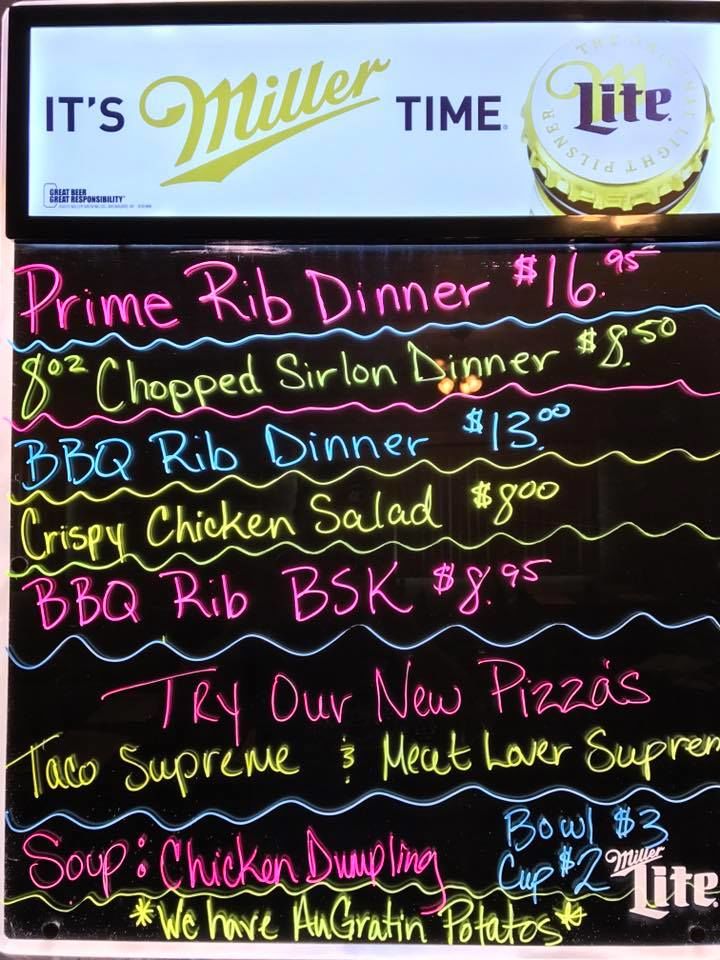 IT'S Miller TIME.
THE ORIGINAL LIGHT PILSNER
Lite
GREAT BEER
GREAT RESPONSIBILITY
Prime Rib Dinner $16.95
8oz Chopped Sirlon Dinner $8.50
BBQ Rib Dinner $13.00
Crispy Chicken Salad $800
BBQ Rib BSK $8.95
Try Our New Pizza's
Taco Supreme & Meat Lover Suprem
Soup: Chicken Dumpling
Bowl $3
Cup $2
Miller
Lite
*We have AuGratin Potatos*